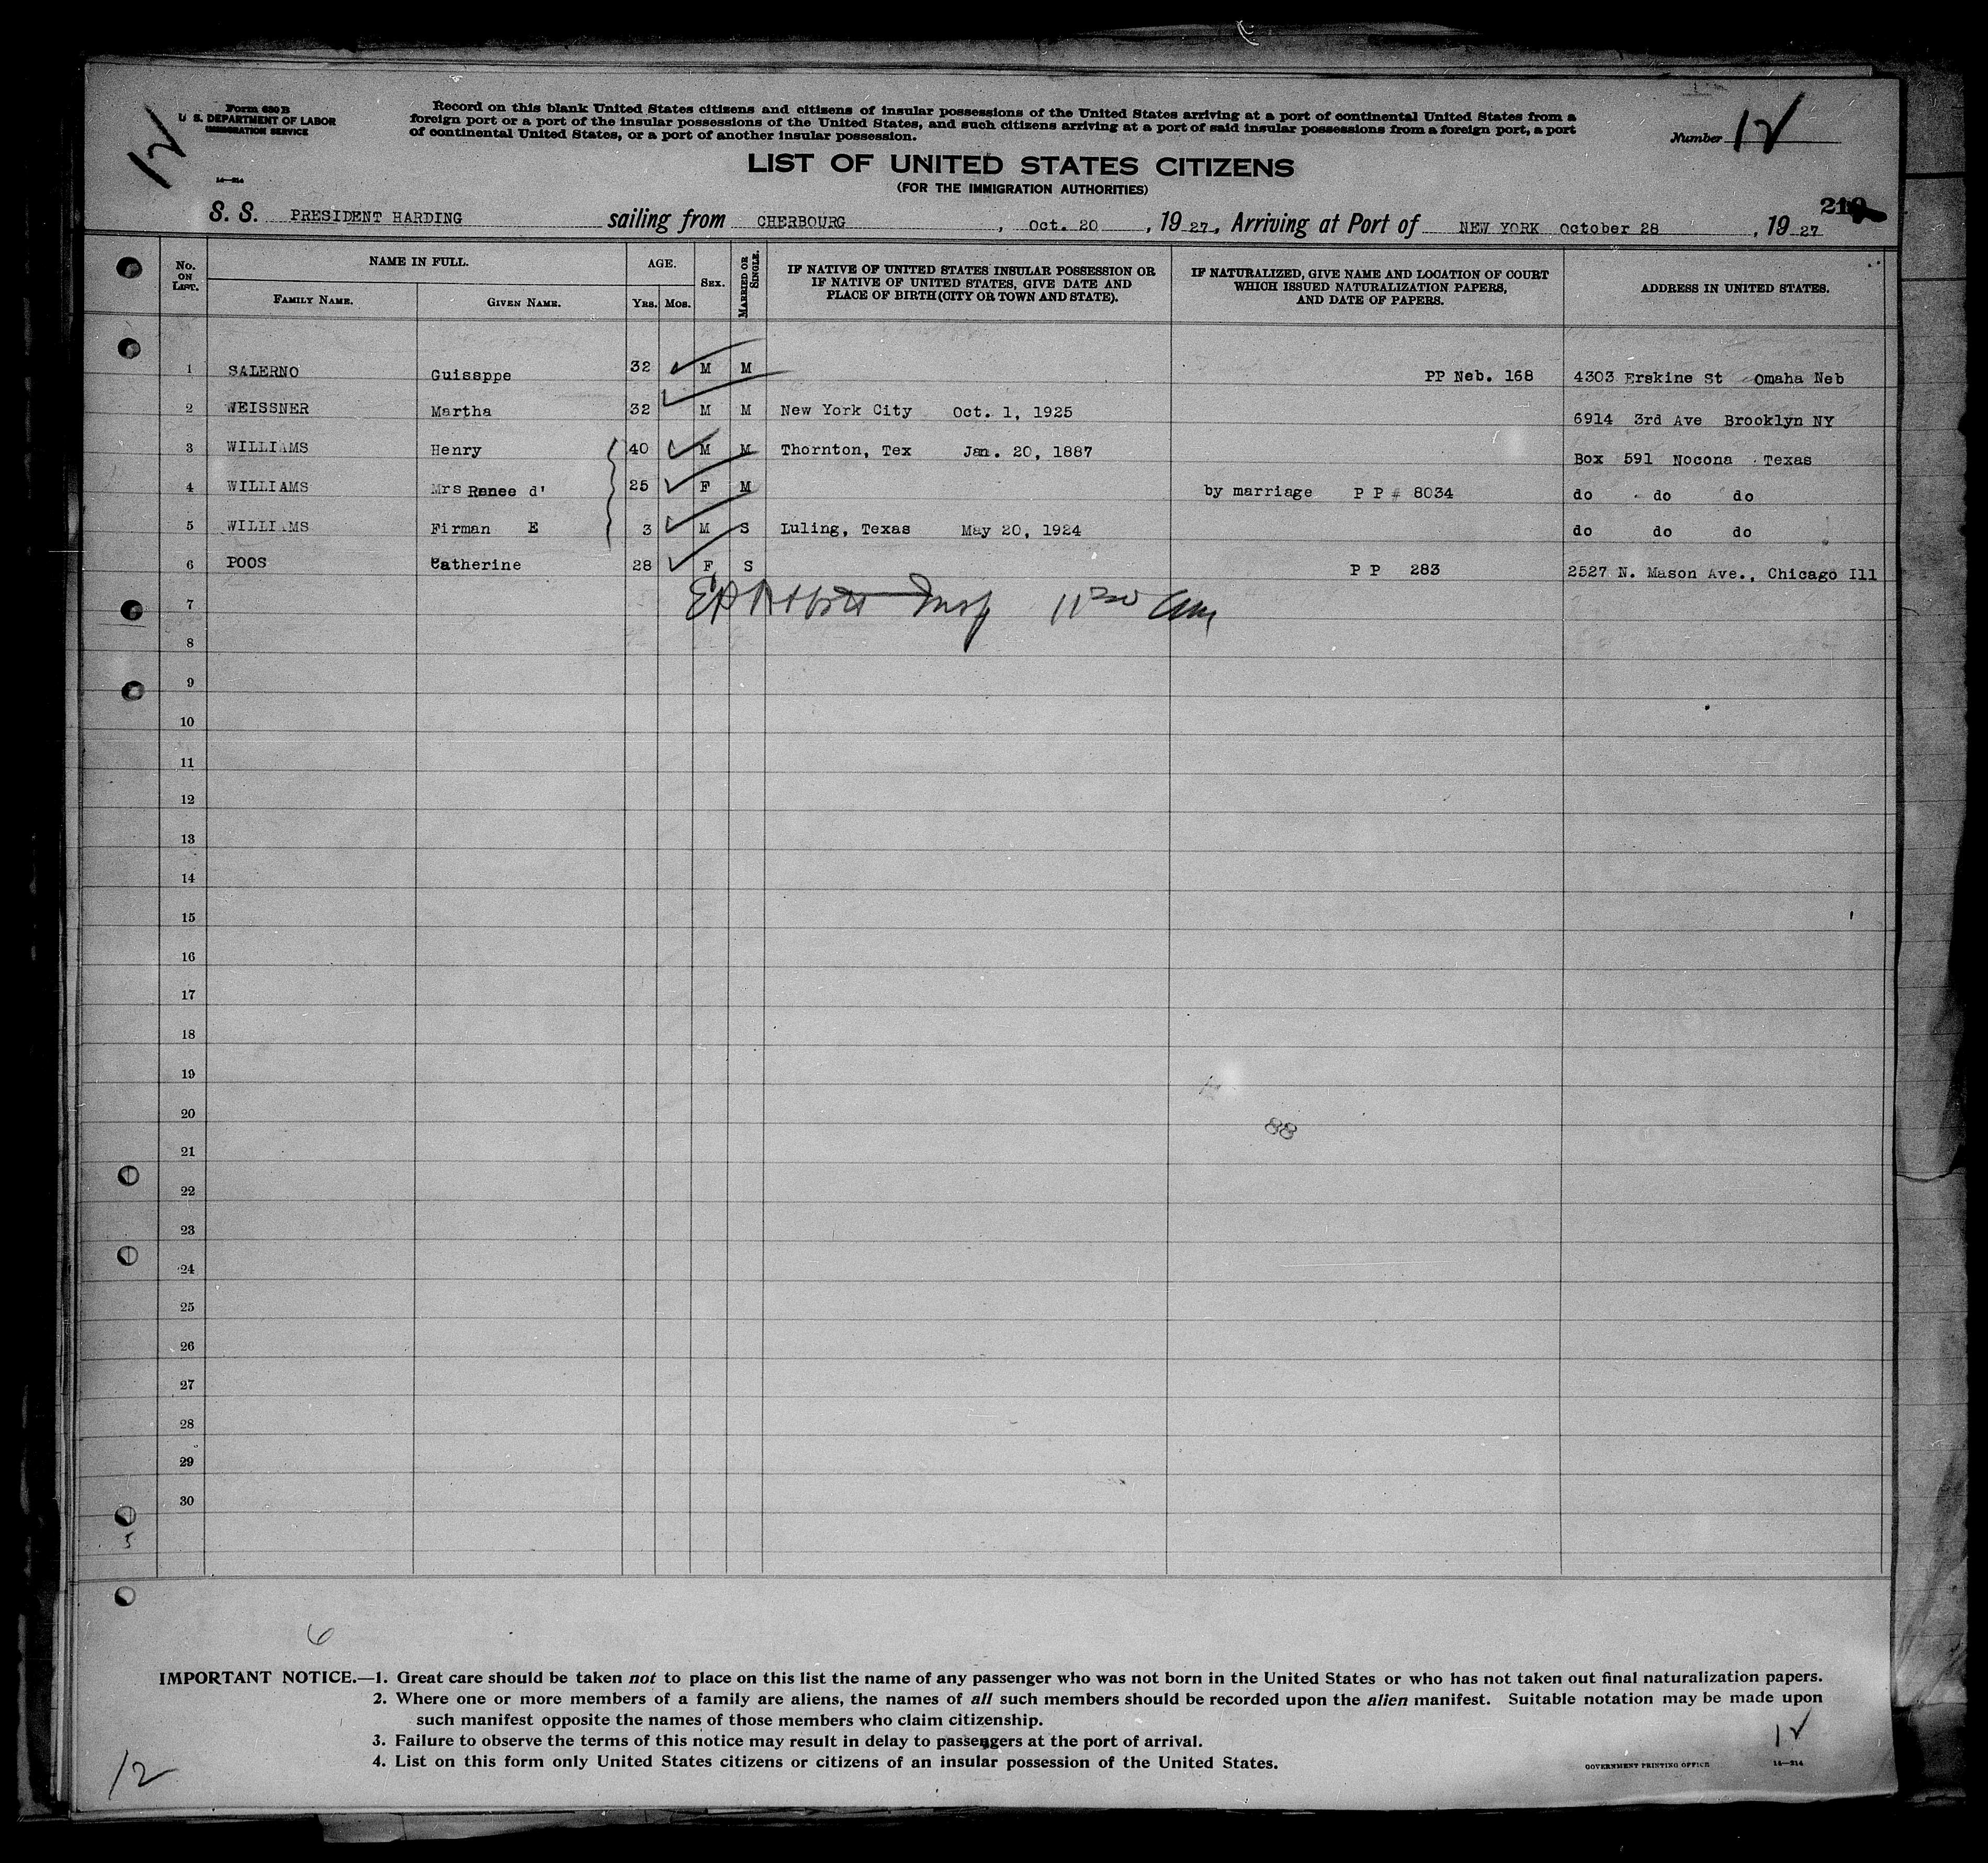 12
Form 630 B
U. S. DEPARTMENT OF LABOR
IMMIGRATION SERVICE
14—214
Record on this blank United States citizens and citizens of insular possessions of the United States arriving at a port of continental United States from a
foreign port or a port of the insular possessions of the United States, and such citizens arriving at a port of said insular possessions from a foreign port, a port
of continental United States, or a port of another insular possession.
Number 12
LIST OF UNITED STATES CITIZENS
(FOR THE IMMIGRATION AUTHORITIES)
S. S. PRESIDENT HARDING sailing from CHERBOURG , Oct. 20 , 19 27, Arriving at Port of NEW YORK October 28 , 19 27
No. ON LIST. NAME IN FULL. FAMILY NAME. GIVEN NAME. AGE. YRS. MOS. SEX. MARRIED OR SINGLE. IF NATIVE OF UNITED STATES INSULAR POSSESSION OR IF NATIVE OF UNITED STATES, GIVE DATE AND PLACE OF BIRTH (CITY OR TOWN AND STATE). IF NATURALIZED, GIVE NAME AND LOCATION OF COURT WHICH ISSUED NATURALIZATION PAPERS, AND DATE OF PAPERS. ADDRESS IN UNITED STATES.
1 SALERNO Guissppe 32 M M PP Neb. 168 4303 Erskine St Omaha Neb
2 WEISSNER Martha 32 M M New York City Oct. 1, 1925 6914 3rd Ave Brooklyn NY
3 WILLIAMS Henry 40 M M Thornton, Tex Jan. 20, 1887 Box 591 Nocona Texas
4 WILLIAMS Mrs Renee d' 25 F M by marriage P P # 8034 do do do
5 WILLIAMS Firman E 3 M S Luling, Texas May 20, 1924 do do do
6 POOS Catherine 28 F S P P 283 2527 N. Mason Ave., Chicago Ill
7 Insp 11 30 am
8
9
10
11
12
13
14
15
16
17
18
19
20
88
21
22
23
24
25
26
27
28
29
30
5
6
IMPORTANT NOTICE.—1. Great care should be taken not to place on this list the name of any passenger who was not born in the United States or who has not taken out final naturalization papers.
2. Where one or more members of a family are aliens, the names of all such members should be recorded upon the alien manifest. Suitable notation may be made upon
such manifest opposite the names of those members who claim citizenship.
3. Failure to observe the terms of this notice may result in delay to passengers at the port of arrival.
4. List on this form only United States citizens or citizens of an insular possession of the United States.
12
GOVERNMENT PRINTING OFFICE 14—214
12